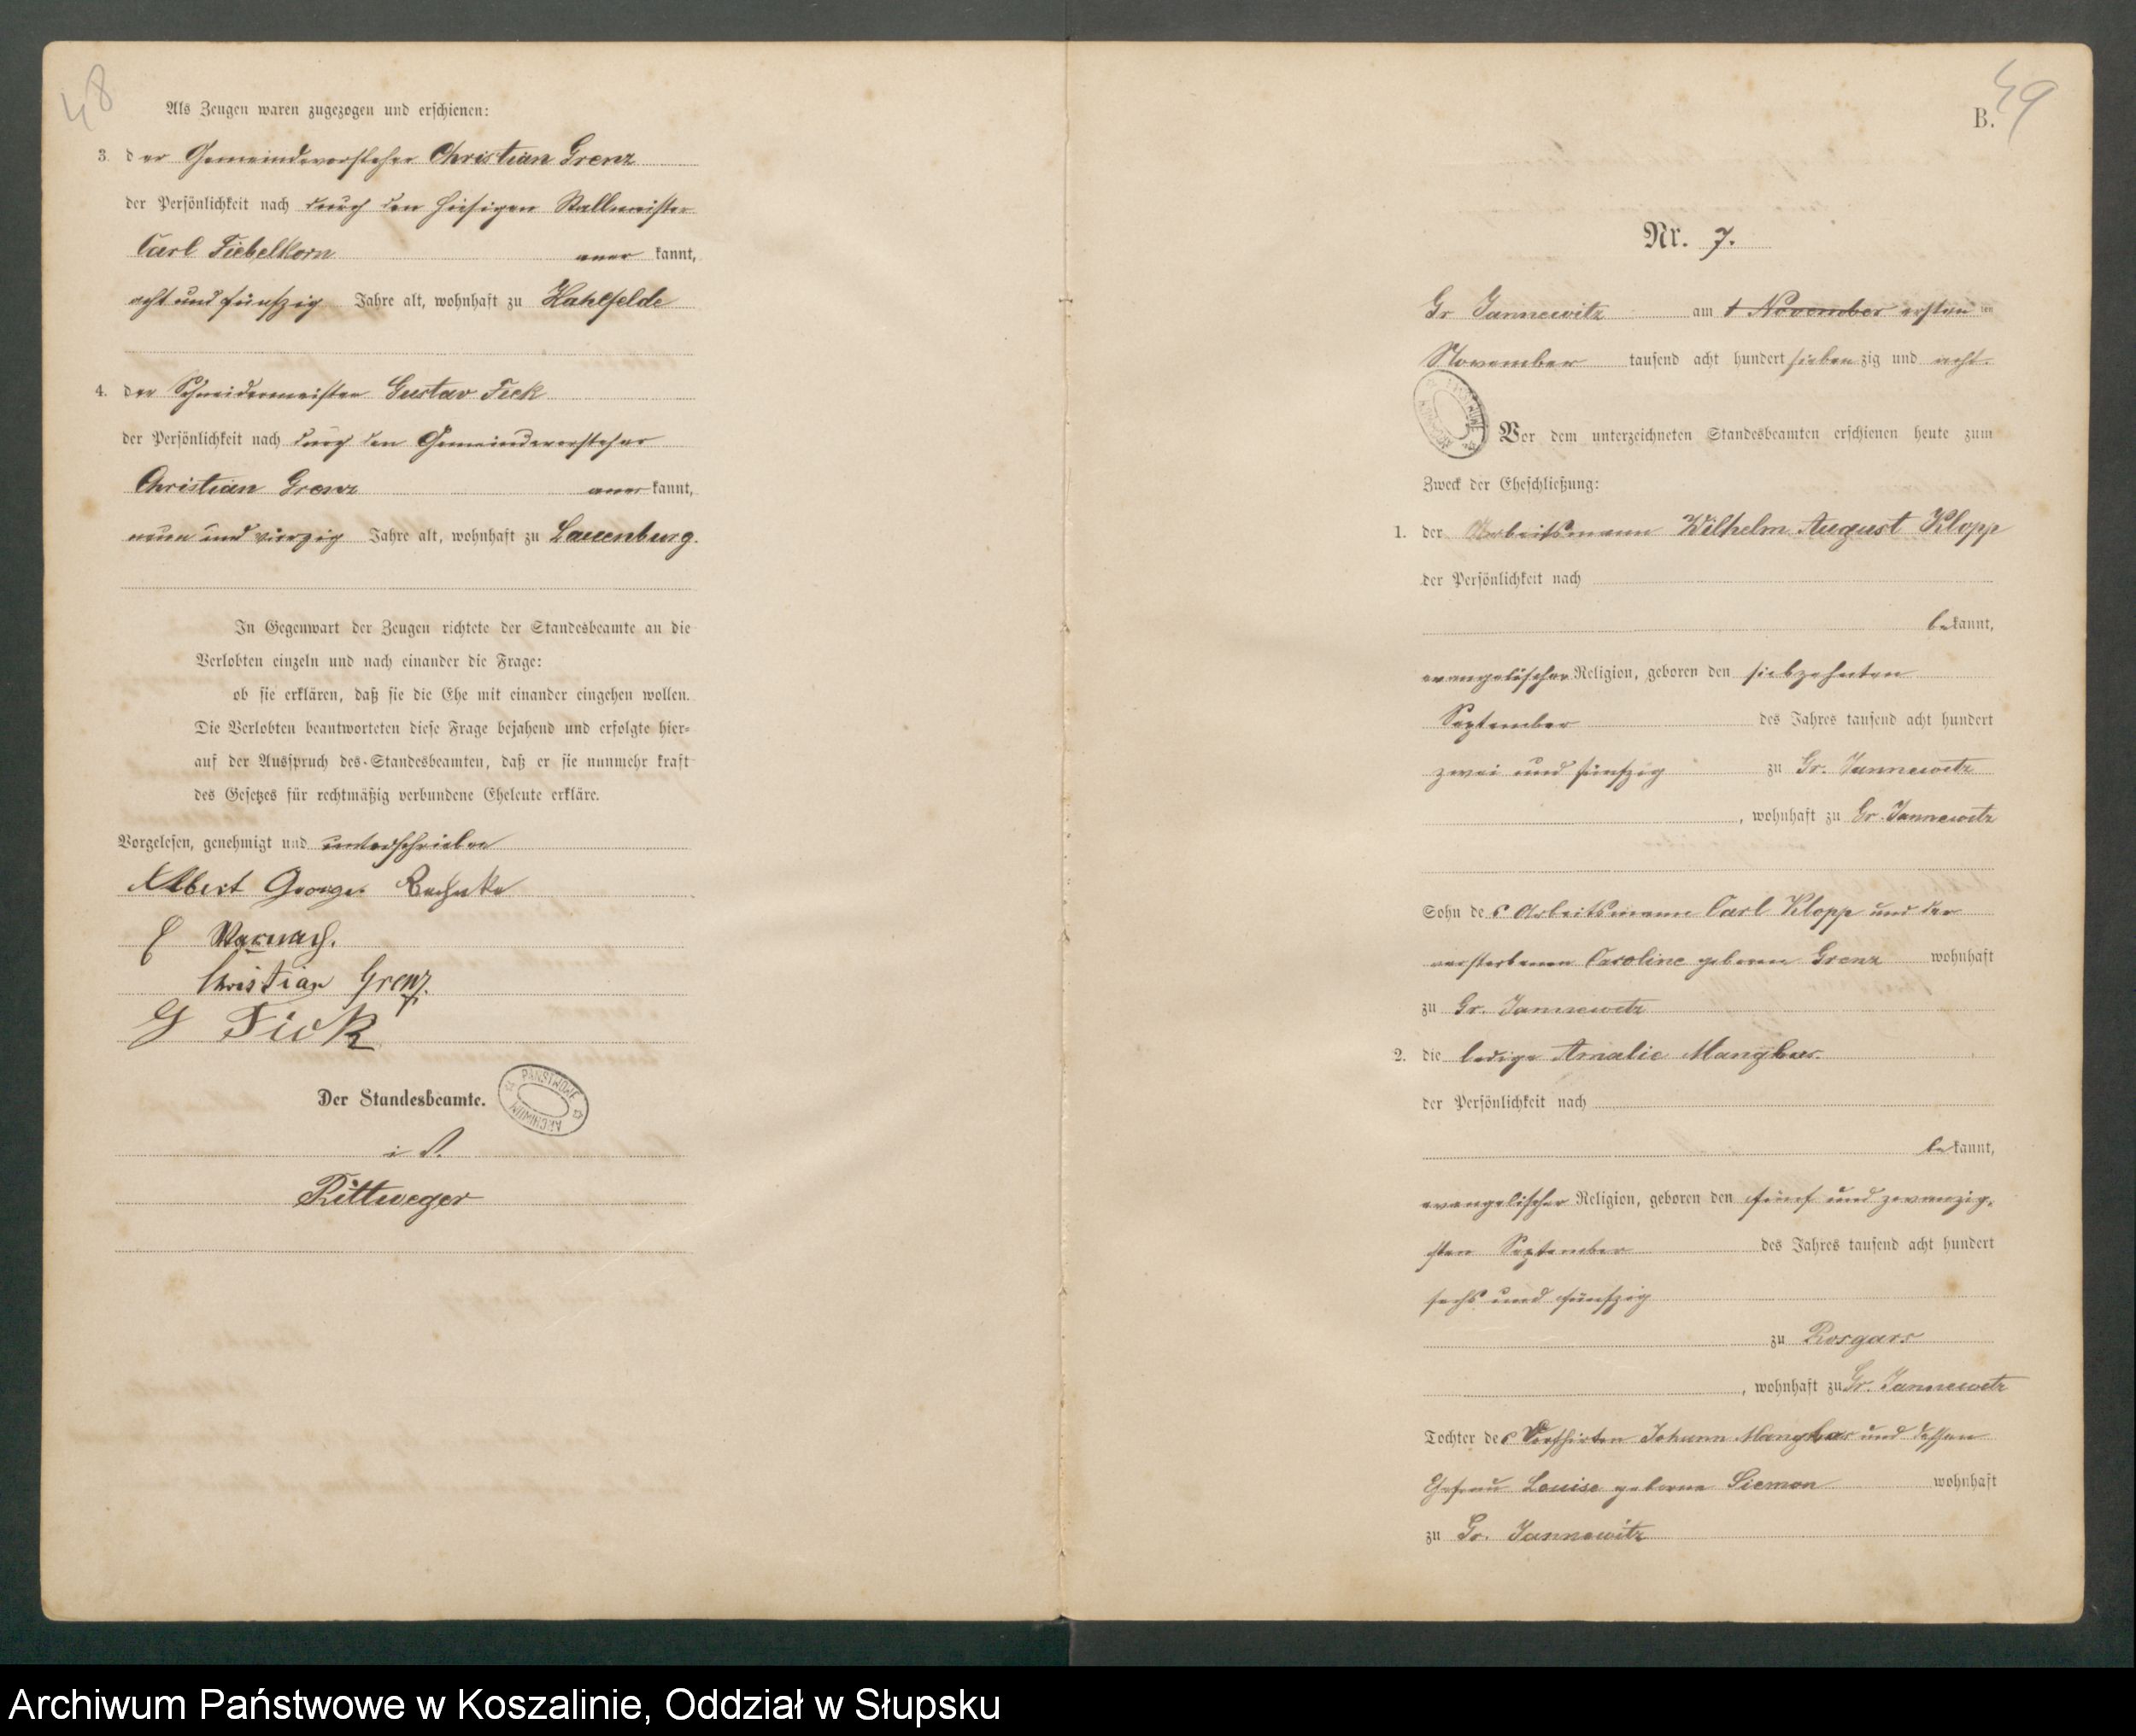 48
Als Zeugen waren zugezogen und erschienen:
3. der Gemeindevorsteher Christian Grenz
der Persönlichkeit nach durch den hiesigen Stallmeister
Carl Fiebelkorn anerkannt,
acht und fünfzig Jahre alt, wohnhaft zu Kahlfelde
4. der Schneidermeister Gustav Fick
der Persönlichkeit nach durch den Gemeindevorsteher
Christian Grenz anerkannt,
neun und vierzig Jahre alt, wohnhaft zu Lauenburg.
In Gegenwart der Zeugen richtete der Standesbeamte an die
Verlobten einzeln und nach einander die Frage:
ob sie erklären, daß sie die Ehe mit einander eingehen wollen.
Die Verlobten beantworteten diese Frage bejahend und erfolgte hier-
auf der Ausspruch des Standesbeamten, daß er sie nunmehr kraft
des Gesetzes für rechtmäßig verbundene Eheleute erkläre.
Vorgelesen, genehmigt und unterschrieben
Albert George
Warnach.
Christian Grenz.
G Fick
Der Standesbeamte.
PAŃSTWOWE ARCHIWUM
i. V.
Rittweger
49
B.
Nr. 7.
Gr Jannewitz am 1 November ersten ten
November tausend acht hundert siebenzig und acht.
PAŃSTWOWE ARCHIWUM
Vor dem unterzeichneten Standesbeamten erschienen heute zum
Zweck der Eheschließung:
1. der Arbeitsmann Wilhelm August Klopp
der Persönlichkeit nach
bekannt,
evangelischer Religion, geboren den siebzehnten
September des Jahres tausend acht hundert
zwei und fünfzig zu Gr. Jannewitz
, wohnhaft zu Gr. Jannewitz
Sohn des Arbeitsmann Carl Klopp und der
verstorbenen Caroline geborene Grenz wohnhaft
zu Gr. Jannewitz
2. die ledige Amalie Mangkar
der Persönlichkeit nach
bekannt,
evangelischer Religion, geboren den fünf und zwanzig-
sten September des Jahres tausend acht hundert
sechs und fünfzig
zu Rosgars
, wohnhaft zu Gr. Jannewitz
Tochter des Dorfhirten Johann Mangkar und dessen
Ehefrau Louise geborene Siemon wohnhaft
zu Gr. Jannewitz
Archiwum Państwowe w Koszalinie, Oddział w Słupsku